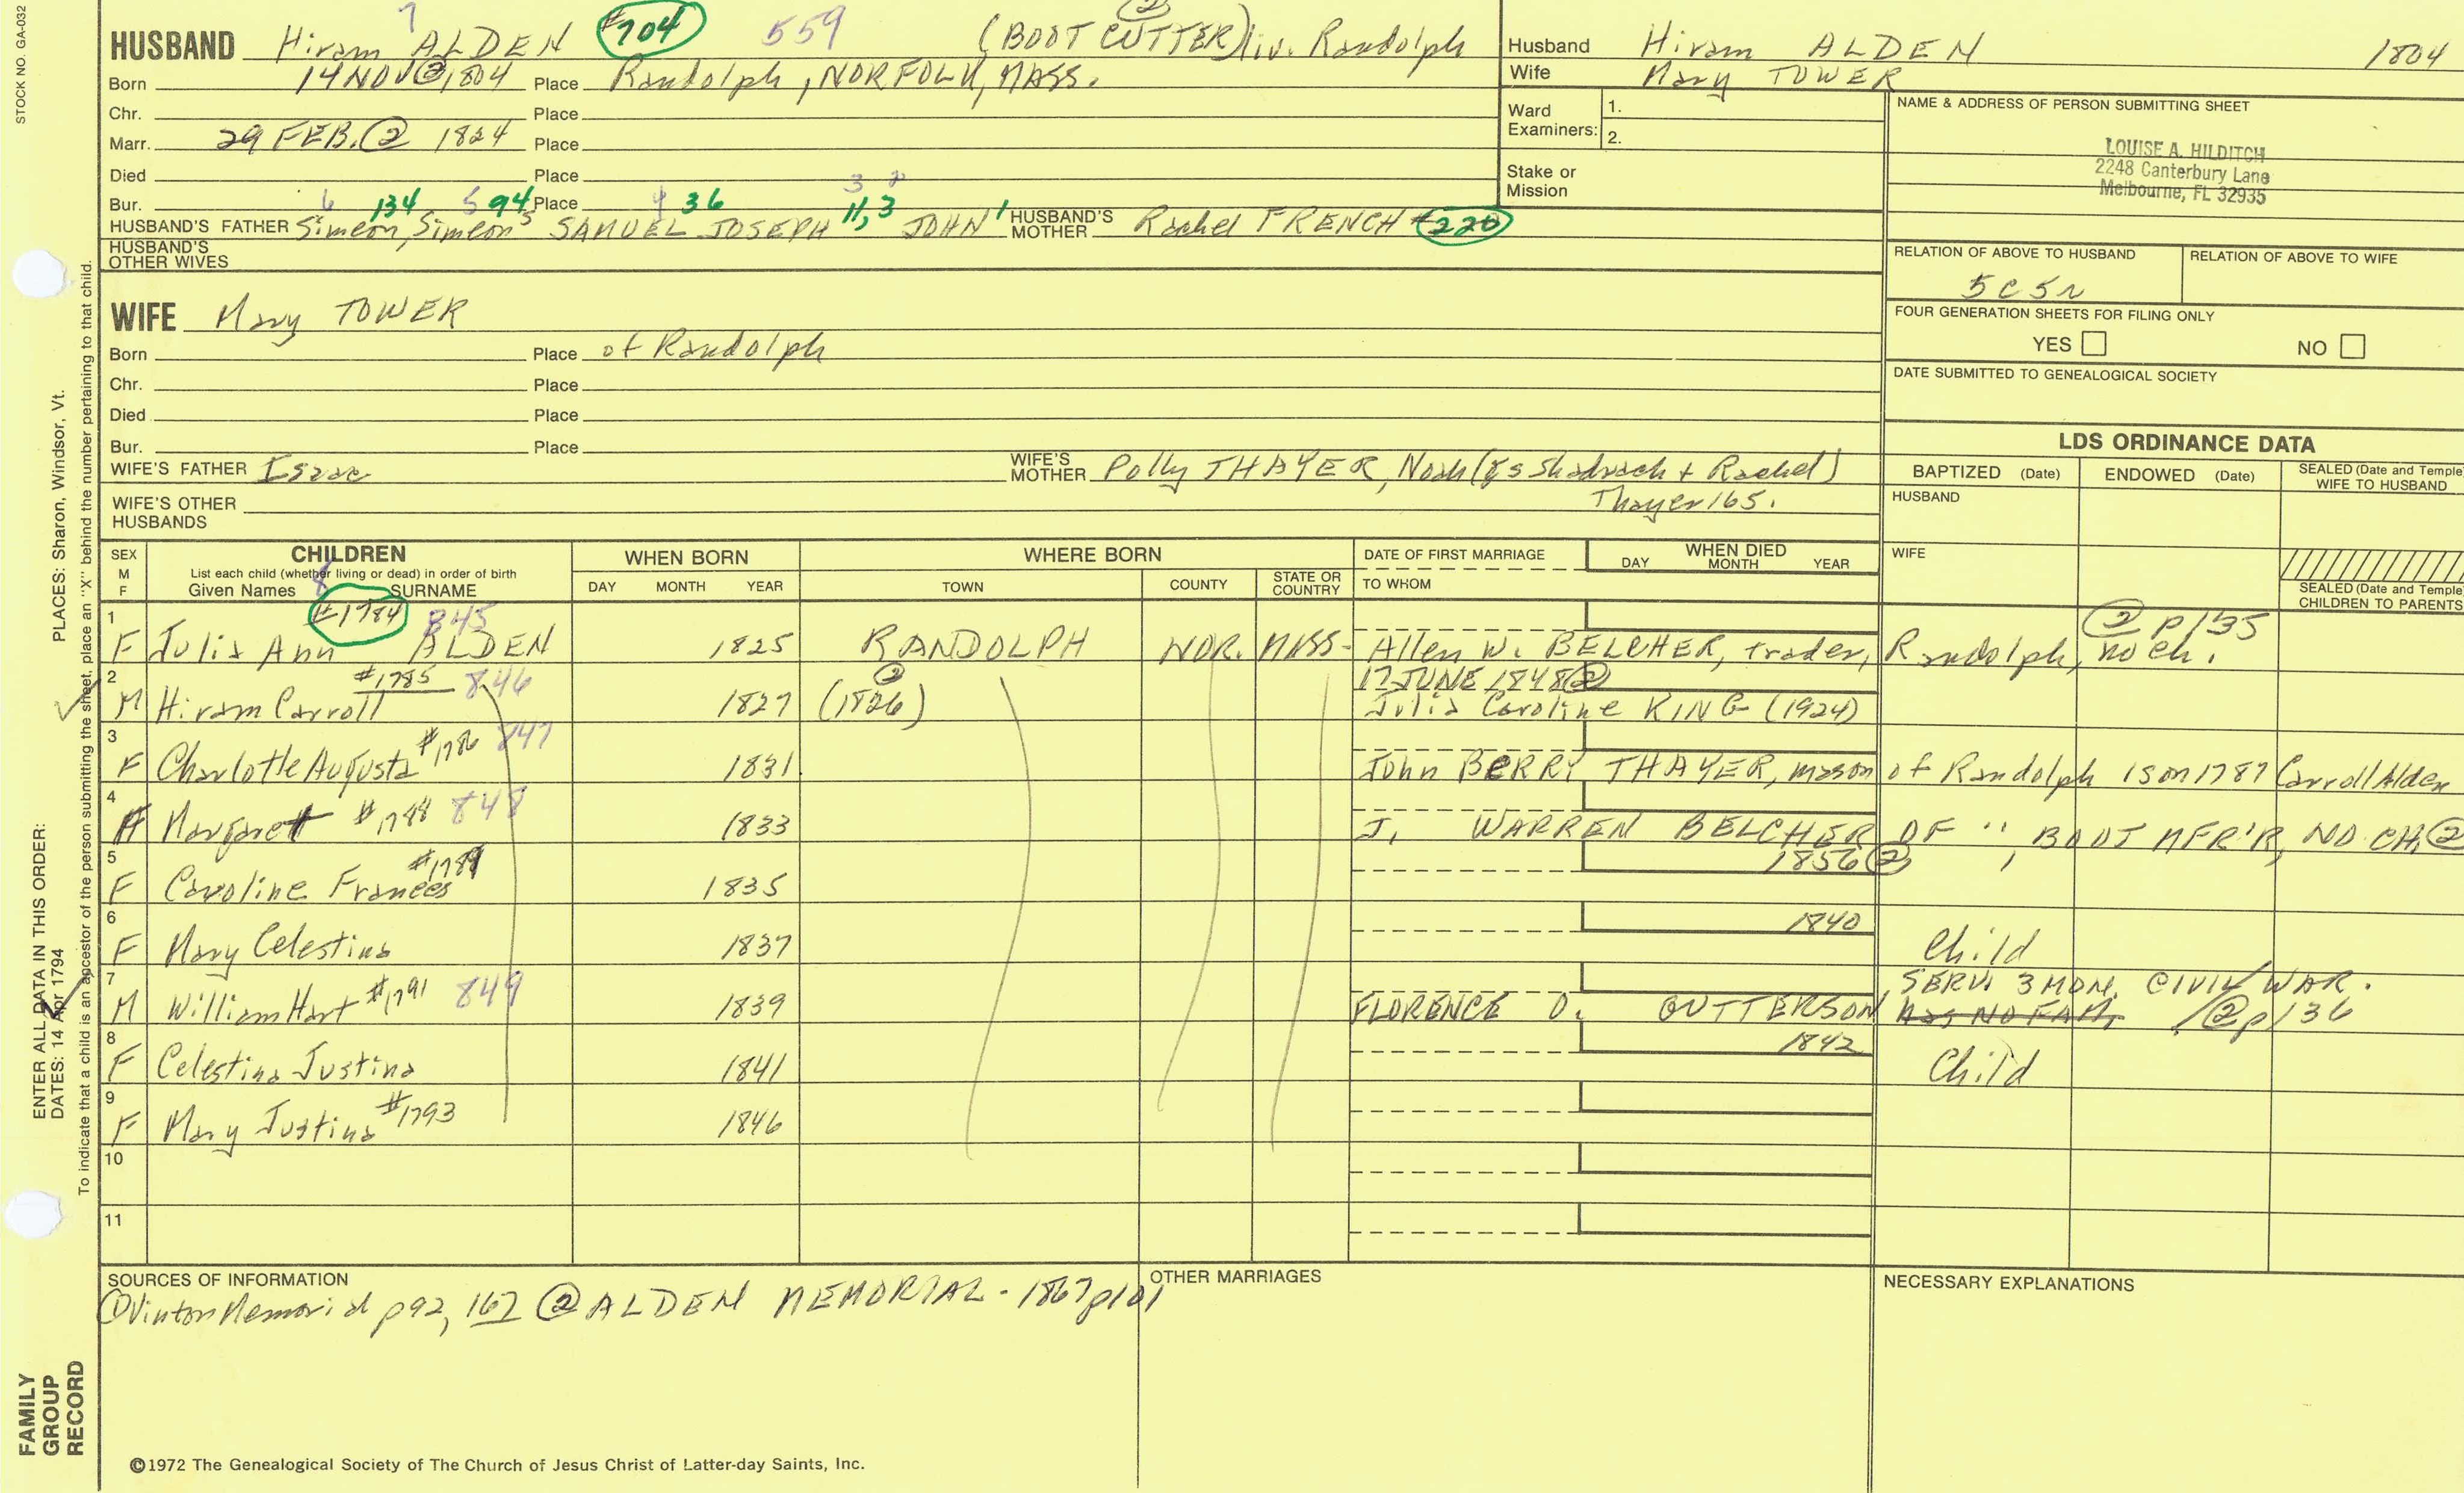 STOCK NO. GA-032
HUSBAND Hiram ALDEN #704 559 (BOOT CUTTER) liv. Randolph
7
②
Born 14 NOV ② 1804 Place Randolph, NORFOLK, MASS.
Chr. Place
Marr. 29 FEB. ② 1824 Place
Died Place
Bur. Place
6 134 5 94 4 36 3 11,3 2
HUSBAND'S FATHER Simeon, Simeon 5 SAMUEL JOSEPH JOHN 1 HUSBAND'S MOTHER Rachel FRENCH #220
HUSBAND'S OTHER WIVES
Husband Hiram ALDEN 1804
Wife Mary TOWER
Ward Examiners: 1.
2.
Stake or Mission
NAME & ADDRESS OF PERSON SUBMITTING SHEET
LOUISE A. HILDITCH
2248 Canterbury Lane
Melbourne, FL 32935
RELATION OF ABOVE TO HUSBAND RELATION OF ABOVE TO WIFE
5c5r
FOUR GENERATION SHEETS FOR FILING ONLY
YES NO
DATE SUBMITTED TO GENEALOGICAL SOCIETY
WIFE Mary TOWER
Born Place of Randolph
Chr. Place
Died Place
Bur. Place
WIFE'S FATHER Isaac WIFE'S MOTHER Polly THAYER, Noah (gs Shadrach + Rachel)
Thayer 165.
WIFE'S OTHER HUSBANDS
LDS ORDINANCE DATA
BAPTIZED (Date) ENDOWED (Date) SEALED (Date and Temple) WIFE TO HUSBAND
HUSBAND
WIFE
SEALED (Date and Temple) CHILDREN TO PARENTS
SEX M F CHILDREN
List each child (whether living or dead) in order of birth
Given Names SURNAME
WHEN BORN DAY MONTH YEAR
WHERE BORN TOWN COUNTY STATE OR COUNTRY
DATE OF FIRST MARRIAGE TO WHOM
WHEN DIED DAY MONTH YEAR
1 #1784 845 ② p135
F Julia Ann ALDEN 1825 RANDOLPH NOR. MASS- Allen W. BELCHER, trader, Randolph, no ch.
2 #1785 846 ② 17 JUNE 1848 ②
M Hiram Carroll 1827 (1826) Julia Caroline KING (1924)
3 #1786 847
F Charlotte Augusta 1831 John BERRY THAYER, mason of Randolph 1 son 1787 Carroll Alden
4
F Margarett #1788 848 1833 J. WARREN BELCHER OF " , BOOT MFR'R, NO CH. ②
5 #1789 1856 ②
F Caroline Frances 1835
6 1840
F Mary Celestina 1837 Child
7 SERV. 3 MON. CIVIL WAR.
M William Hart #1791 849 1839 FLORENCE O. GUTTERSON has NO FAM, ② p136
8 1842
F Celestina Justina 1841 Child
9
F Mary Justina #1793 1846
10
11
SOURCES OF INFORMATION
① Vinton Memorial p92, 167 ② ALDEN MEMORIAL - 1867 p101
OTHER MARRIAGES
NECESSARY EXPLANATIONS
©1972 The Genealogical Society of The Church of Jesus Christ of Latter-day Saints, Inc.
PLACES: Sharon, Windsor, Vt.
ENTER ALL DATA IN THIS ORDER:
DATES: 14 Apr 1794
To indicate that a child is an ancestor of the person submitting the sheet, place an "X" behind the number pertaining to that child.
FAMILY GROUP RECORD